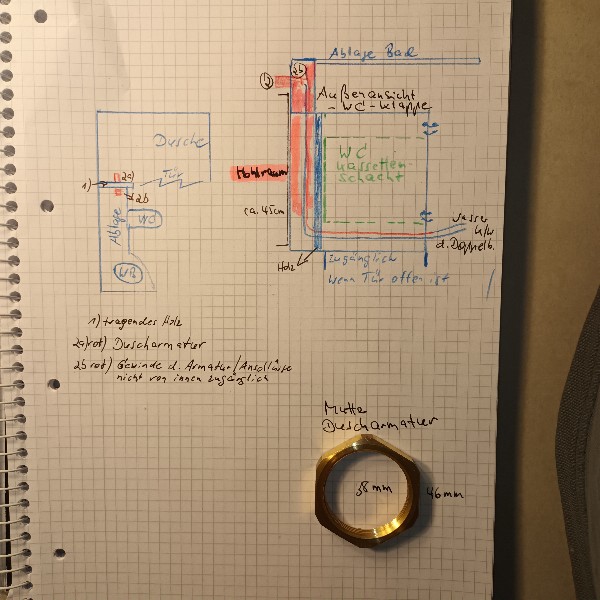 Ablage Bad
2b
Außenansicht
- WC - Klappe
Dusche
Tür
1)
2a)
2b
Ablage
WC
WB
WC
Kassetten-
schacht
Hohlraum
ca. 45cm
Wasser
k/w
d. Doppelb.
Holz
Zugänglich
wenn Tür offen ist
1) tragendes Holz
2a) rot) Duscharmatur
2b rot) Gewinde d. Armatur/Anschlüsse
nicht von innen zugänglich
Mutter
Duscharmatur
38 mm
46 mm